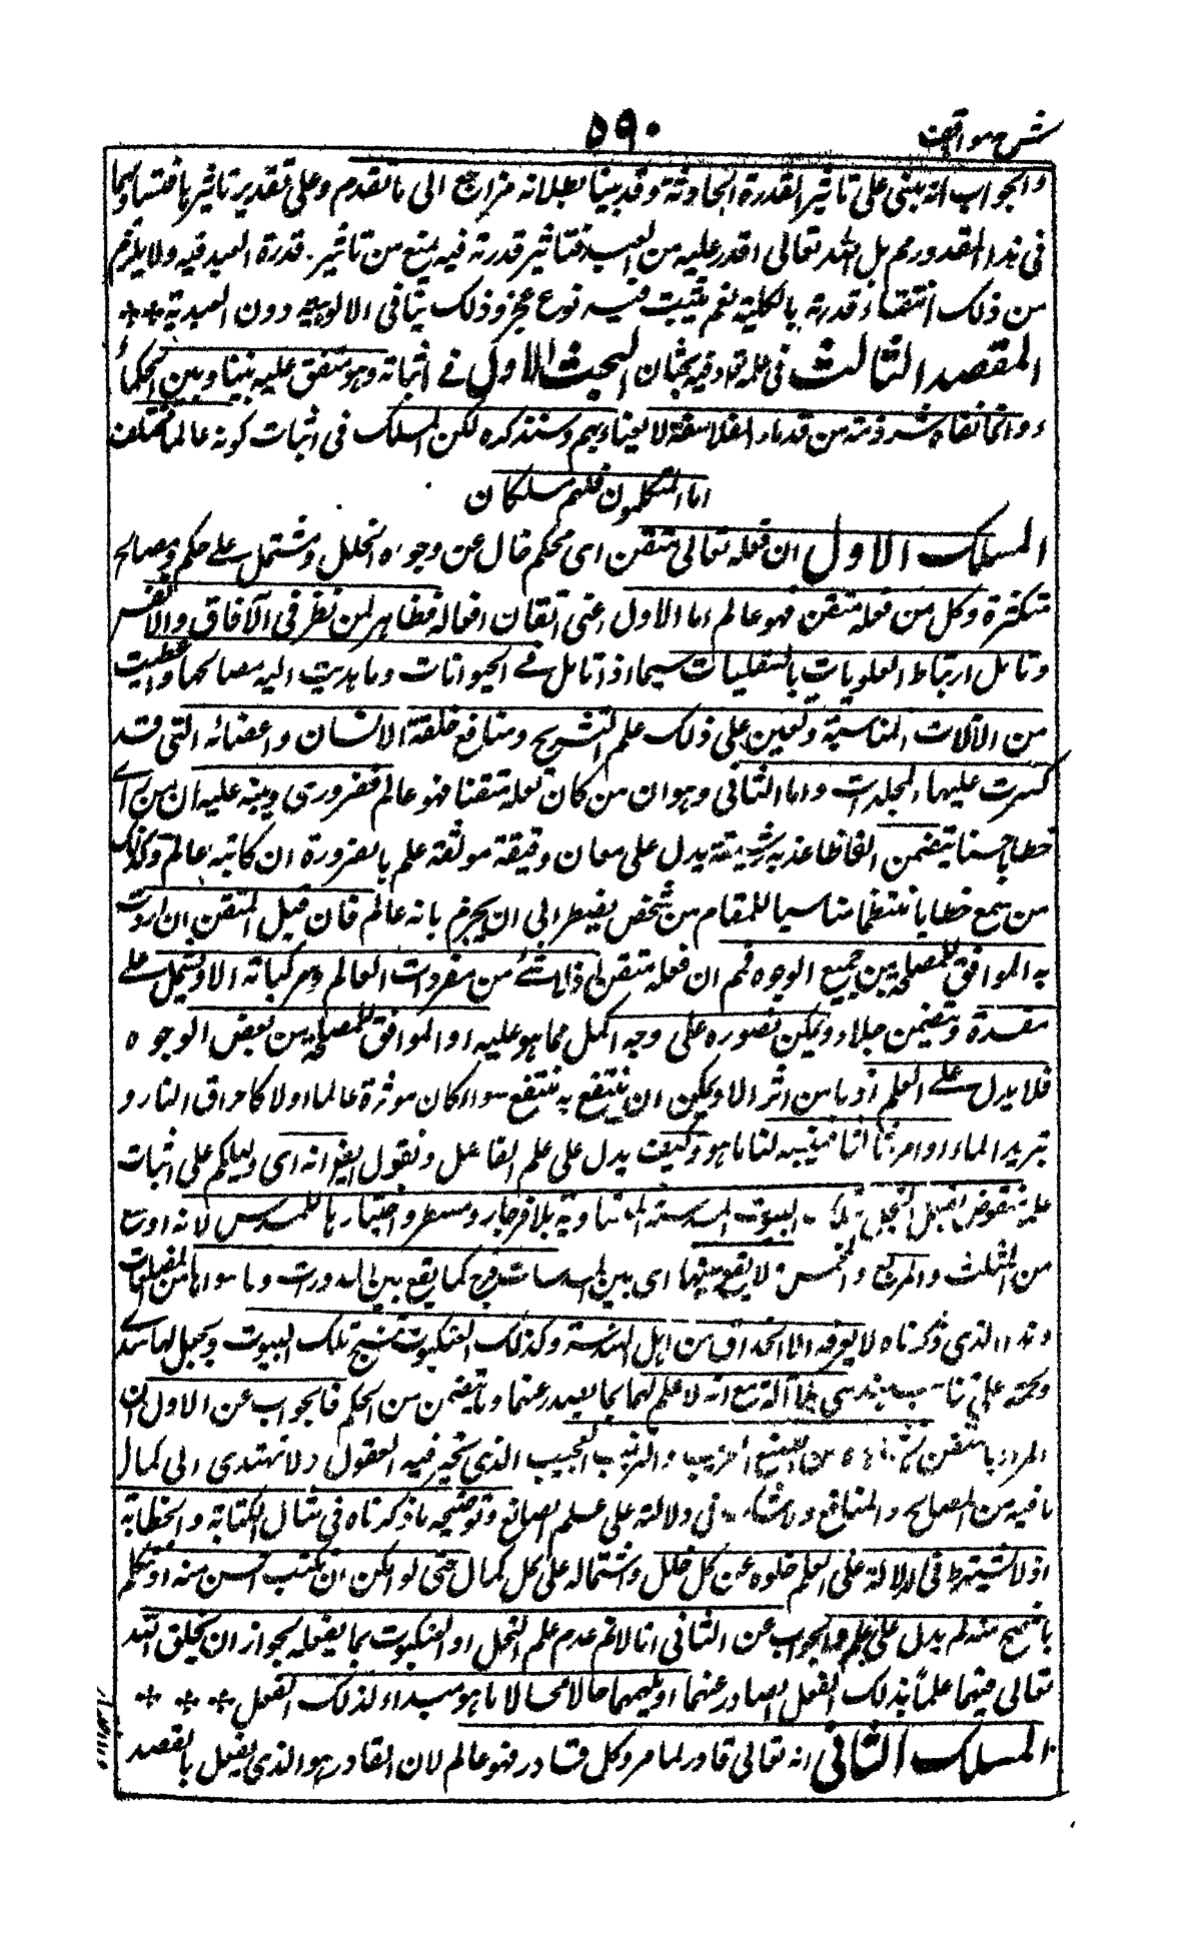 شرح مواقف
٥٩٠
والجواب انه مبنى على تاثير القدرة الحادثة وقد بينا بطلانه مزاج الى ما تقدم وعلى تقدير تاثيرها فتساويهما
فى هذا المقدور مم بل الله تعالى اقدر عليه من العبد فتاثير قدرته فيه يمنع من تاثير قدرة العبد فيه ولا يلزم
من ذلك انتفاء قدرته بالكلية نعم يثبت فيه نوع عجز وذلك ينافى الالوهية دون العبدية **
المقصد الثالث فى علمه تعالى وفيه بحثان البحث الاول فى اثباته وهو متفق عليه بيننا وبين الحكماء
وانما نفاه شرذمة من قدماء الفلاسفة لا يعبأ بهم وستذكره لكن المسلك فى اثبات كونه عالما مختلف
اما المتكلمون فلهم مسلكان
المسلك الاول ان فعله تعالى متقن اى محكم خال عن وجوه الخلل ومشتمل على حكم ومصالح
متكثرة وكل من فعله متقن فهو عالم اما الاول اعنى اتقان افعاله فظاهر لمن نظر فى الآفاق والانفس
وتامل ارتباط العلويات بالسفليات سيما اذا تامل فى الحيوانات وما هديت اليه مصالحها واعطيت
من الآلات المناسبة ويعين على ذلك علم التشريح ومنافع خلقة الانسان واعضائه التى قد
كسرت عليها المجلدات واما الثانى وهو ان من كان فعله متقنا فهو عالم فضرورى وينبه عليه ان من راى
خطا حسنا يتضمن الفاظا عذبة رشيقة يدل على معان دقيقة مونقة علم بالضرورة ان كاتبه عالم وكذلك
من سمع خطابا منتظما مناسبا للمقام من شخص يضطر الى ان يجزم بانه عالم فان قيل المتقن ان اردت
به الموافق للمصلحة من جميع الوجوه فمم ان فعله متقن اذ ما شئ من مفردات العالم ومركباته الا ويشتمل على
مفسدة ويتضمن خللا ويمكن تصوره على وجه اكمل مما هو عليه او الموافق للمصلحة من بعض الوجوه
فلا يدل على العلم اذ ما من اثر الا ويمكن ان ينتفع به منتفع سواء كان موثره عالما اولا كاحراق النار و
تبريد الماء او امر ثالثا فبينه لنا ما هو وكيف يدل على علم الفاعل ونقول ايضا انه اى دليلكم على اثبات
علمه منقوض بفعل النحل تلك البيوت المسدسة المتساوية بلا فرجار ومسطر واختيارها للمسدس لانه اوسع
من المثلث والمربع والمخمس ولا يقع بينها اى بين المسدسات فرج كما يقع بين المدورات وما سواها من المضلعات
وهذا الذى ذكرناه لا يعرفه الا الحذاق من اهل الهندسة وكذلك العنكبوت تنسج تلك البيوت وتجعل لها سدى
ولحمة على تناسب هندسى بلا آلة مع انه لا علم لهما بما يصدر عنهما وما يتضمن من الحكم فالجواب عن الاول ان
المراد بالمتقن من الصنع الغريب والترتيب العجيب الذى يتحير فيه العقول ولا تهتدى الى كمال
ما فيه من المصالح والمنافع ولا شك فى دلالته على علم الصانع وتوضيحه ما ذكرناه فى مثال الكتابة والخطابة
اذ لا يشترط فى الدلالة على العلم خلوه عن كل خلل واشتماله على كل كمال حتى لو امكن ان يكتب احسن منه او يتكلم
بافصح منه لم يدل على علم والجواب عن الثانى انا لا نم عدم علم النحل او العنكبوت بما يفعله لجواز ان يخلق الله
تعالى فيهما علما بذلك الفعل الصادر عنهما او يلهمهما حالا فحالا ما هو مبدء لذلك الفعل * * *
المسلك الثانى انه تعالى قادر لما مر وكل قادر فهو عالم لان القادر هو الذى يفعل بالقصد